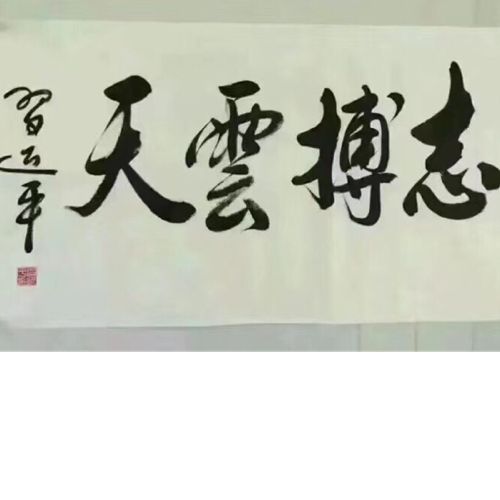 志搏雲天
習运平